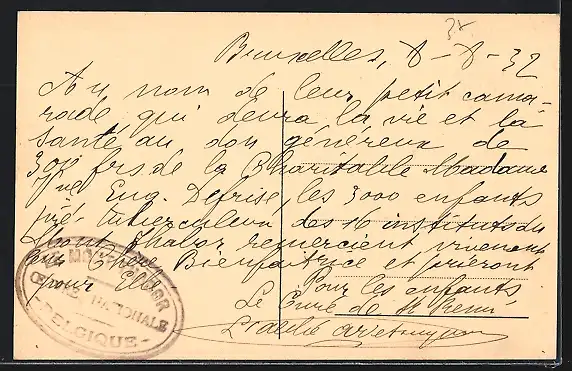 Bruxelles, 8-8-32
Au nom de leur petit cama-
rade qui devra la vie et la
santé au don généreux de
300 frs. de la Charitable Madame
Vve Eug. Defrise, les 3000 enfants
pré-tuberculeux des 16 instituts du
Mont Thabor remercient vivement
leur Chère Bienfaitrice et prieront
pour Elle.
Pour les enfants,
Le Curé de St Remi
L'abbé
MONT-THABOR
ŒUVRE NATIONALE
BELGIQUE